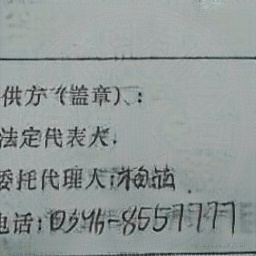 供方（盖章）：
法定代表人
委托代理人：
电话：0546-8557777